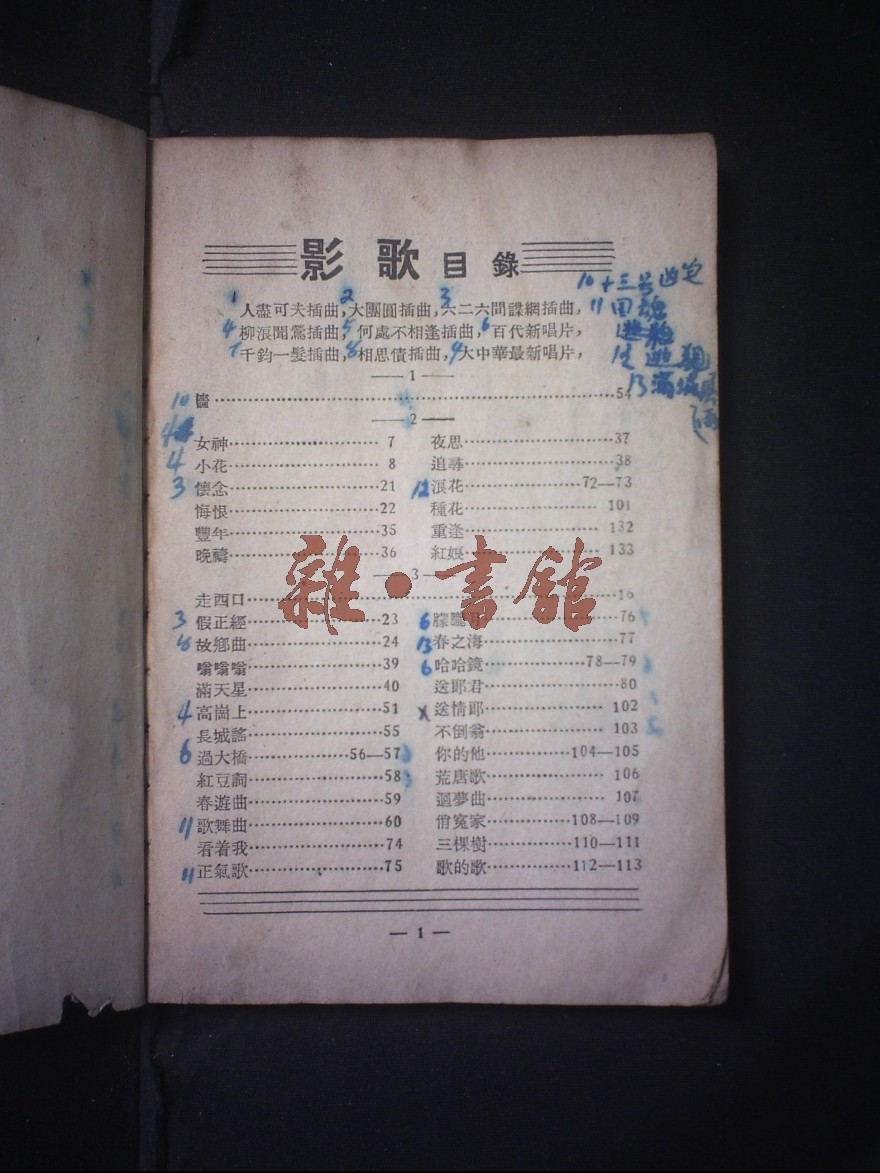 影歌目錄
人盡可夫插曲，大團圓插曲，六二六間諜網插曲，
柳浪聞鶯插曲，何處不相逢插曲，百代新唱片，
千鈞一髮插曲，相思債插曲，大中華最新唱片，
1 2 3
4 5 6
7 8 9
10 十三号
11
12
13
—1—
10 ……54
—2—
女神……7 夜思……37
4 小花……8 追尋……38
3 懷念……21 12 浪花……72—73
悔恨……22 種花……101
豐年……35 重逢……132
晚禱……36 紅娘……133
—3—
走西口……16
3 假正經……23 6 朦朧……76
8 故鄉曲……24 13 春之海……77
嗡嗡嗡……39 6 哈哈鏡……78—79
滿天星……40 送郎君……80
4 高崗上……51 X 送情郎……102
長城謠……55 不倒翁……103
6 過大橋……56—57 你的他……104—105
紅豆詞……58 荒唐歌……106
春遊曲……59 迴夢曲……107
11 歌舞曲……60 俏冤家……108—109
看着我……74 三棵樹……110—111
11 正氣歌……75 歌的歌……112—113
— 1 —
雜·書館